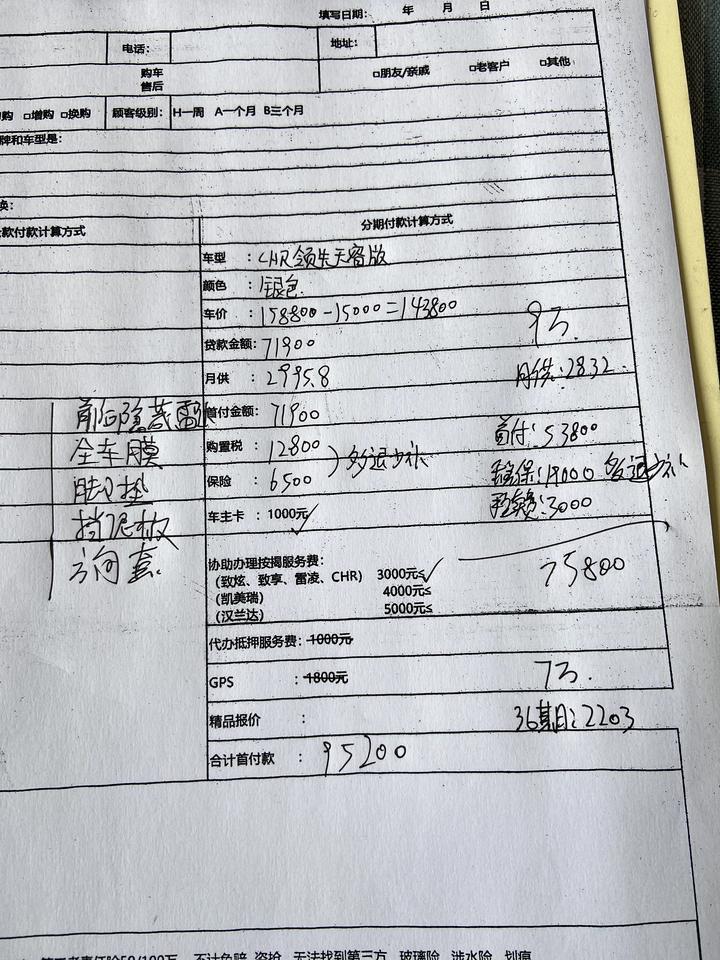 填写日期： 年 月 日
电话： 地址：
购车
售后
□朋友/亲戚 □老客户 □其他
购 □增购 □换购 顾客级别： H一周 A一个月 B三个月
牌和车型是：
换：
款付款计算方式 分期付款计算方式
车型 ：CHR领先天窗版
颜色 ：银色
车价 ：158800-15000=143800
9万.
贷款金额：71900
月供 ：2995.8 月供：2832.
首付金额：71900 首付：53800
购置税 ：12800 ）多退少补
保险 ：6500 税保：19000 多退少补
车主卡 ：1000元✓ 手续费：3000
75800
前后隐藏雷达
全车膜
脚垫
挡泥板
方向套.
协助办理按揭服务费：
（致炫、致享、雷凌、CHR） 3000元≤✓
（凯美瑞） 4000元≤
（汉兰达） 5000元≤
代办抵押服务费：1000元
GPS ：1800元 7万.
精品报价 ： 36期：2203
合计首付款 ：95200
第三者责任险50/100万 不计免赔 盗抢 无法找到第三方 玻璃险 涉水险 划痕